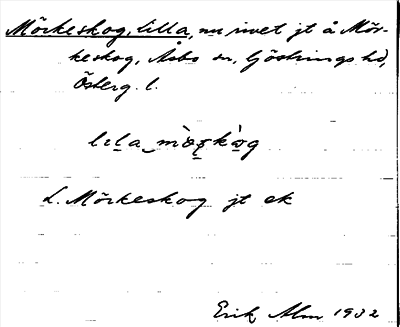 Mörkeskog, lilla, nu rivet jt å Mör-
keskog, Åsbo sn, Göstrings hd,
Österg. l.
L. Mörkeskog jt ek
Erik Alm 1932